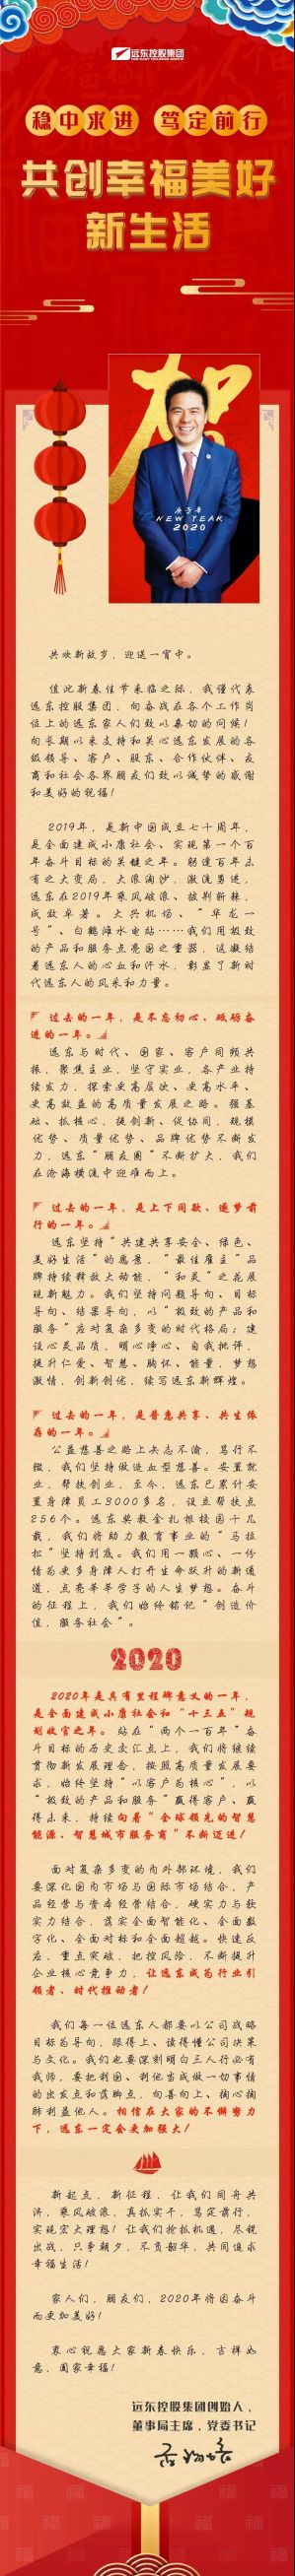 远东控股集团
FAR EAST HOLDING GROUP
稳中求进 笃定前行
共创幸福美好
新生活
贺
庚子年
NEW YEAR
2020
共欢新故岁，迎送一宵中。
值此新春佳节来临之际，我谨代表
远东控股集团，向奋战在各个工作岗
位上的远东家人们致以亲切的问候！
向长期以来支持和关心远东发展的各
级领导、客户、股东、合作伙伴、友
商和社会各界朋友们致以诚挚的感谢
和美好的祝福！
2019年，是新中国成立七十周年，
是全面建成小康社会、实现第一个百
年奋斗目标的关键之年。躬逢百年未
有之大变局，大浪淘沙，激流勇进，
远东在2019年乘风破浪、披荆斩棘，
成效卓著。大兴机场、“华龙一
号”、白鹤滩水电站……我们用极致
的产品和服务点亮国之重器，这凝结
着远东人的心血和汗水，彰显了新时
代远东人的风采和力量。
过去的一年，是不忘初心、砥砺奋
进的一年。
远东与时代、国家、客户同频共
振，聚焦主业，坚守实业，各产业持
续发力，探索更高层次、更高水平、
更高效益的高质量发展之路。强基
础、抓核心，提创新、促协同，规模
优势、质量优势、品牌优势不断发
力，远东“朋友圈”不断扩大，我们
在沧海横流中迎难而上。
过去的一年，是上下同欲、逐梦前
行的一年。
远东坚持“共建共享安全、绿色、
美好生活”的愿景，“最佳雇主”品
牌持续释放大动能，“和灵”之花展
现新魅力。我们坚持问题导向、目标
导向、结果导向，以“极致的产品和
服务”应对复杂多变的时代格局；建
设心灵品质，明心净心、自我批评，
提升仁爱、智慧、胸怀、能量，梦想
激情，创新创优，续写远东新辉煌。
过去的一年，是普惠共享、共生依
存的一年。
公益慈善之路上矢志不渝，笃行不
辍，我们坚持做造血型慈善。安置就
业，帮扶创业，至今，远东已累计安
置身障员工3000多名，设立帮扶点
256个。远东奖教金扎根校园十几
载，我们将助力教育事业的“马拉
松”坚持到底。我们用一颗心、一份
情为更多身障人打开生命跃升的新通
道，点亮莘莘学子的人生梦想。奋斗
的征程上，我们始终铭记“创造价
值，服务社会”。
2020
2020年是具有里程碑意义的一年，
是全面建成小康社会和“十三五”规
划收官之年。站在“两个一百年”奋
斗目标的历史交汇点上，我们将继续
贯彻新发展理念，按照高质量发展要
求，始终坚持“以客户为核心”，以
“极致的产品和服务”赢得客户、赢
得未来，持续向着“全球领先的智慧
能源、智慧城市服务商”不断迈进！
面对复杂多变的内外部环境，我们
要深化国内市场与国际市场结合，产
品经营与资本经营结合，硬实力与软
实力结合，落实全面智能化、全面数
字化、全面对标和全面超越。快速反
应，重点突破，把控风险，不断提升
企业核心竞争力，让远东成为行业引
领者、时代推动者！
我们每一位远东人都要以公司战略
目标为导向，跟得上、读得懂公司决策
与文化。我们也要深刻明白三人行必有
我师，要把利国、利他当成做一切事情
的出发点和落脚点，向善向上、掏心掏
肺利益他人。相信在大家的不懈努力
下，远东一定会更加强大！
新起点，新征程，让我们同舟共
济，乘风破浪，真抓实干，笃定前行，
实现宏大理想！让我们抢抓机遇，尽锐
出战，只争朝夕，不负韶华，共同追求
幸福生活！
家人们，朋友们，2020年将因奋斗
而更加美好！
衷心祝愿大家新春快乐，吉祥如
意，阖家幸福！
远东控股集团创始人、
董事局主席，党委书记